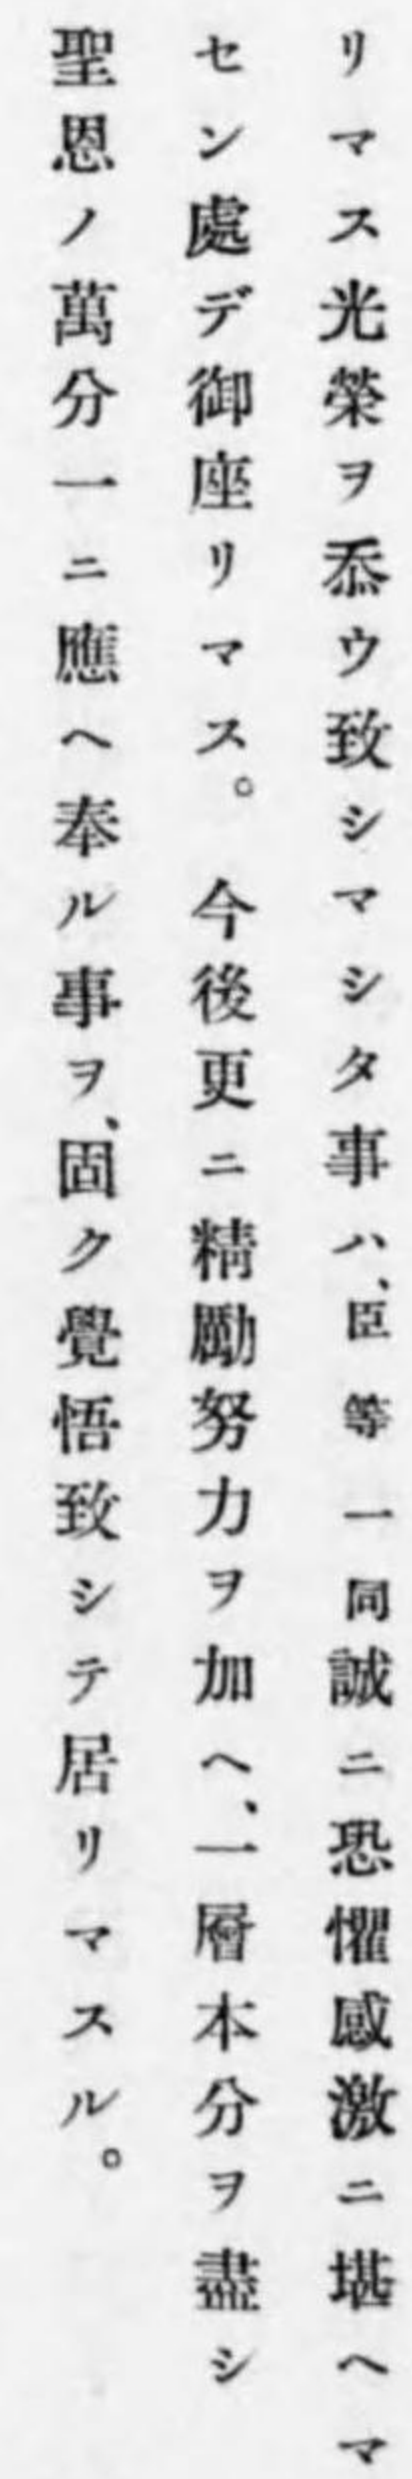 リマス光榮ヲ忝ウ致シマシタ事ハ、臣等一同誠ニ恐懼感激ニ堪ヘマ
セン處デ御座リマス。今後更ニ精勵努力ヲ加ヘ、一層本分ヲ盡シ
聖恩ノ萬分一ニ應ヘ奉ル事ヲ、固ク覺悟致シテ居リマスル。